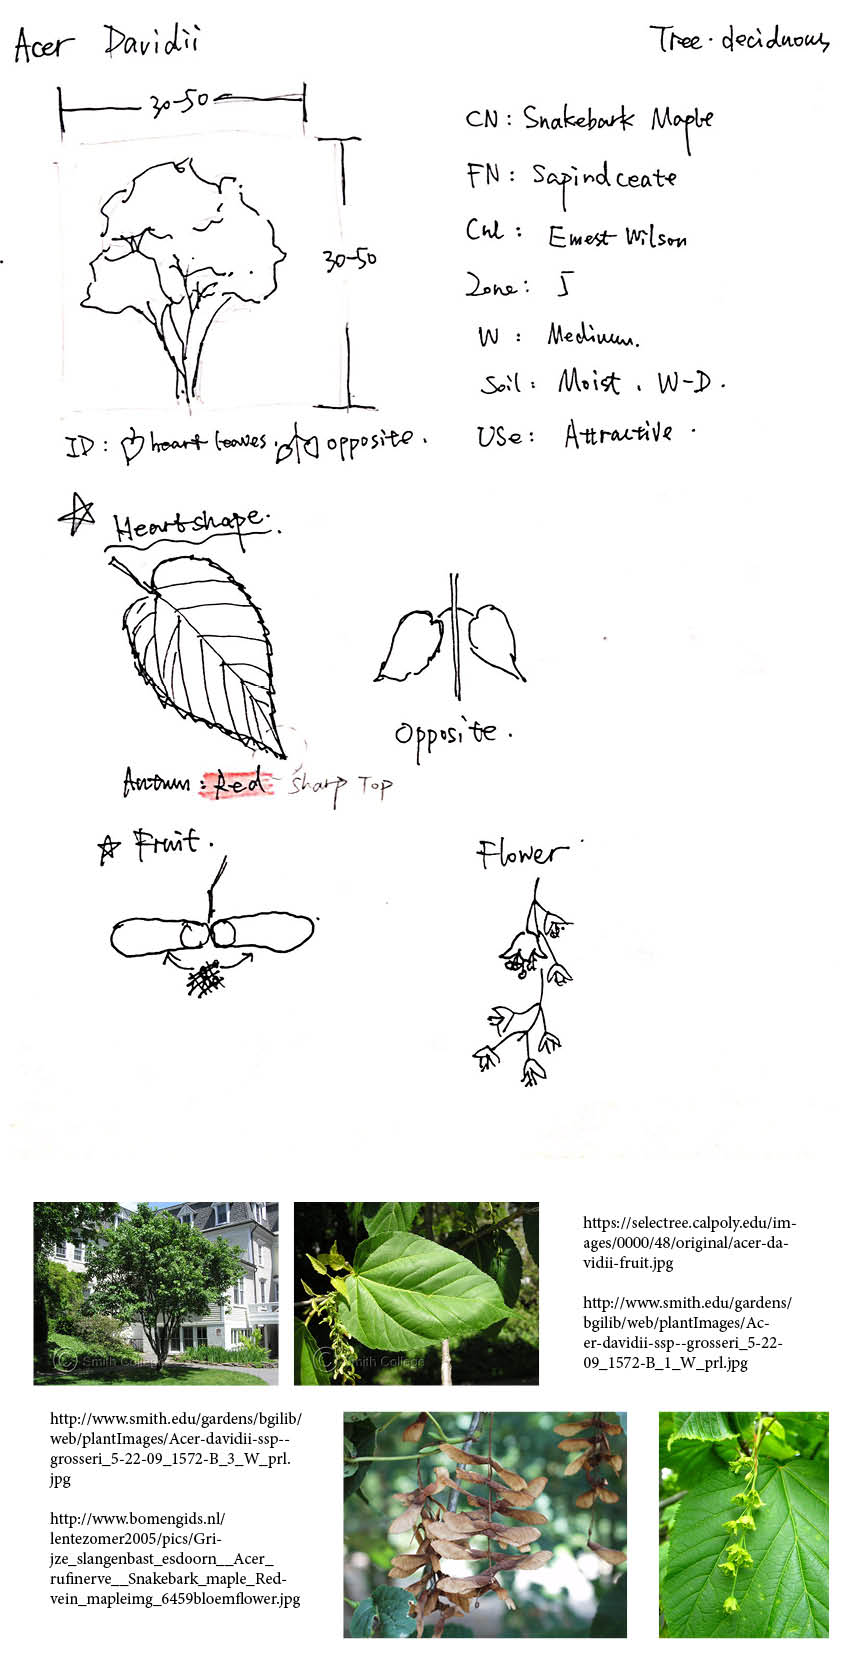 Acer Davidii
Tree · deciduous
30-50
30-50
CN: Snakebark Maple
FN: Sapindceate
Cul: Ernest Wilson
Zone: 5
W: Medium.
Soil: Moist, W-D.
Use: Attractive.
ID: heart leaves. opposite.
Heartshape.
Opposite.
Autumn: Red - Sharp Top
Fruit.
Flower
© Smith College
© Smith College
https://selectree.calpoly.edu/im-
ages/0000/48/original/acer-da-
vidii-fruit.jpg
http://www.smith.edu/gardens/
bgilib/web/plantImages/Ac-
er-davidii-ssp--grosseri_5-22-
09_1572-B_1_W_prl.jpg
http://www.smith.edu/gardens/bgilib/
web/plantImages/Acer-davidii-ssp--
grosseri_5-22-09_1572-B_3_W_prl.
jpg
http://www.bomengids.nl/
lentezomer2005/pics/Gri-
jze_slangenbast_esdoorn__Acer_
rufinerve__Snakebark_maple_Red-
vein_mapleimg_6459bloemflower.jpg